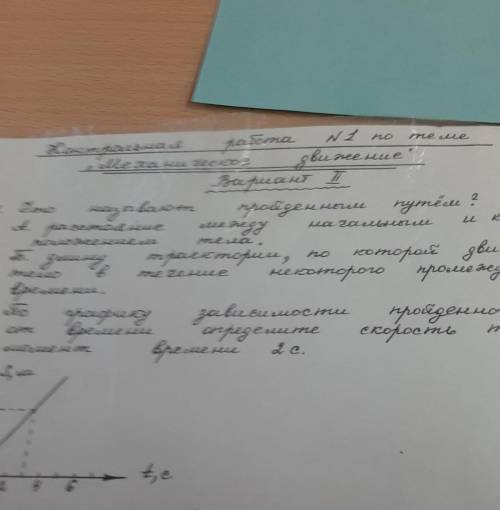 Контрольная работа №1 по теме
"Механическое движение"
Вариант II
Что называют пройденным путём?
А расстояние между начальным и к
положением тела.
Б. длину траектории, по которой дви
тело в течение некоторого промежу
времени.
По графику зависимости пройденно
от времени определите скорость т
момент времени 2 с.
S, м
t, с
2 4 6